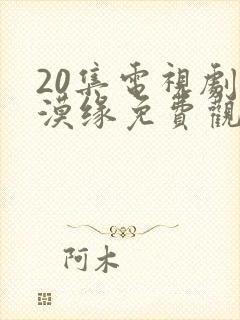 20集電視劇
漠缘免費觀
阿木